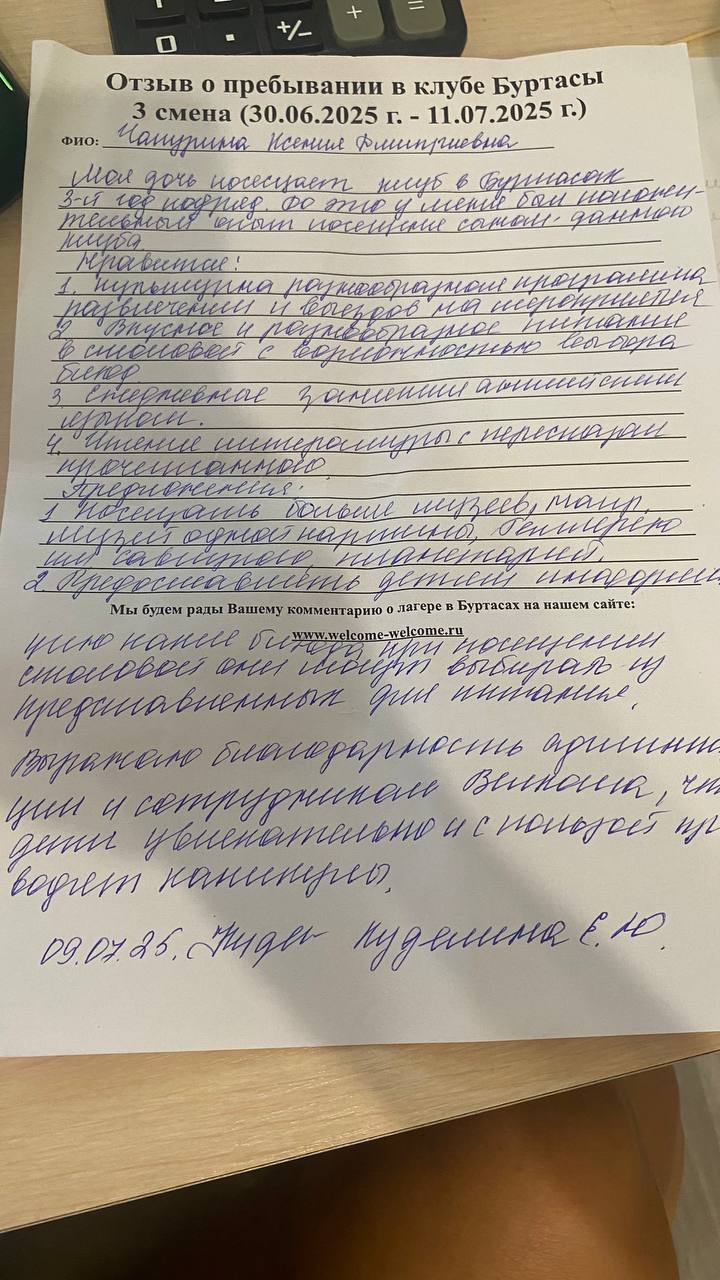 0 . +/- + =
Отзыв о пребывании в клубе Буртасы
3 смена (30.06.2025 г. - 11.07.2025 г.)
ФИО: Чапурина Ксения Дмитриевна
Моя дочь посещает клуб в Буртасах
3-й год подряд. До это у меня был положи-
тельный опыт посещение самой данного
клуба.
Нравится:
1. культурна разнообразная программа
развлечений и выездов на мероприятия
2. Вкусное и разнообразное питание
в столовой с возможностью выбора
блюд
3 Ежедневное занятия английским
языком.
4. Чтение литературы с пересказом
прочитанного.
Предложения:
1 посещать больше музеев, напр.
музей одной картины,
савицкого, планетарий.
2. Предоставлять детям информа
Мы будем рады Вашему комментарию о лагере в Буртасах на нашем сайте:
www.welcome-welcome.ru
цию какие блюда при посещении
столовой они могут выбирать из
представленных для питания.
Выражаю благодарность админист
ции и сотрудникам Велкома, что
дети увлекательно и с пользой про
водят каникулы.
09.07.25. Куделина Е.Ю.